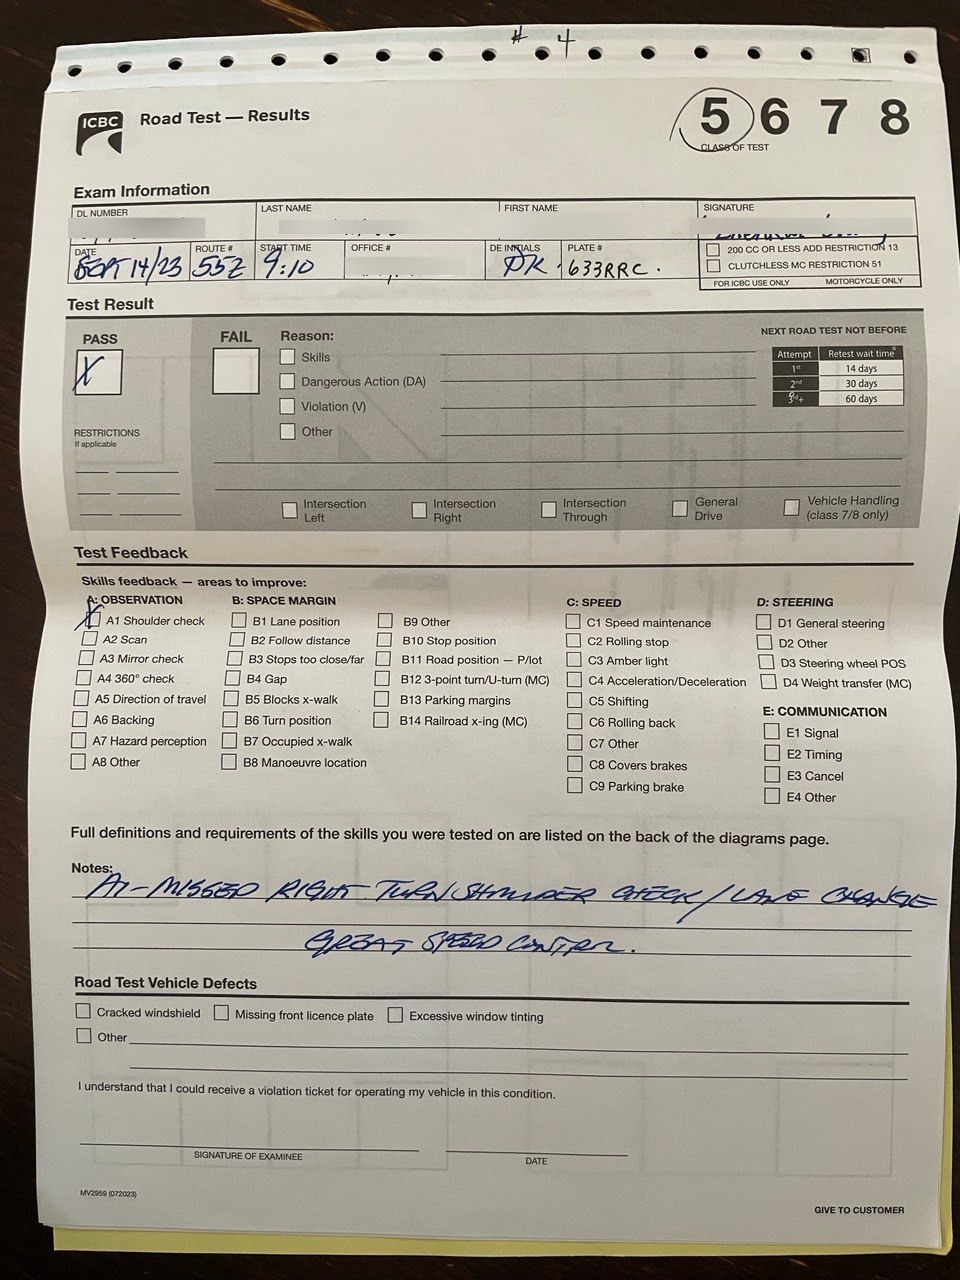 # 4
ICBC
Road Test — Results
5 6 7 8
CLASS OF TEST
Exam Information
DL NUMBER LAST NAME FIRST NAME SIGNATURE
DATE ROUTE # START TIME OFFICE # DE INITIALS PLATE #
SEPT 14/23 552 9:10 DK 633RRC.
200 CC OR LESS ADD RESTRICTION 13
CLUTCHLESS MC RESTRICTION 51
FOR ICBC USE ONLY MOTORCYCLE ONLY
Test Result
PASS
X
RESTRICTIONS
if applicable
FAIL
Reason:
Skills
Dangerous Action (DA)
Violation (V)
Other
NEXT ROAD TEST NOT BEFORE
Attempt Retest wait time
1st 14 days
2nd 30 days
3rd+ 60 days
Intersection Left
Intersection Right
Intersection Through
General Drive
Vehicle Handling (class 7/8 only)
Test Feedback
Skills feedback — areas to improve:
A: OBSERVATION
X A1 Shoulder check
A2 Scan
A3 Mirror check
A4 360° check
A5 Direction of travel
A6 Backing
A7 Hazard perception
A8 Other
B: SPACE MARGIN
B1 Lane position
B2 Follow distance
B3 Stops too close/far
B4 Gap
B5 Blocks x-walk
B6 Turn position
B7 Occupied x-walk
B8 Manoeuvre location
B9 Other
B10 Stop position
B11 Road position — P/lot
B12 3-point turn/U-turn (MC)
B13 Parking margins
B14 Railroad x-ing (MC)
C: SPEED
C1 Speed maintenance
C2 Rolling stop
C3 Amber light
C4 Acceleration/Deceleration
C5 Shifting
C6 Rolling back
C7 Other
C8 Covers brakes
C9 Parking brake
D: STEERING
D1 General steering
D2 Other
D3 Steering wheel POS
D4 Weight transfer (MC)
E: COMMUNICATION
E1 Signal
E2 Timing
E3 Cancel
E4 Other
Full definitions and requirements of the skills you were tested on are listed on the back of the diagrams page.
Notes:
A1 - MISSED RIGHT TURN SHOULDER CHECK / LANE CHANGE
GREAT SPEED CONTROL.
Road Test Vehicle Defects
Cracked windshield Missing front licence plate Excessive window tinting
Other
I understand that I could receive a violation ticket for operating my vehicle in this condition.
SIGNATURE OF EXAMINEE DATE
MV2959 (072023)
GIVE TO CUSTOMER